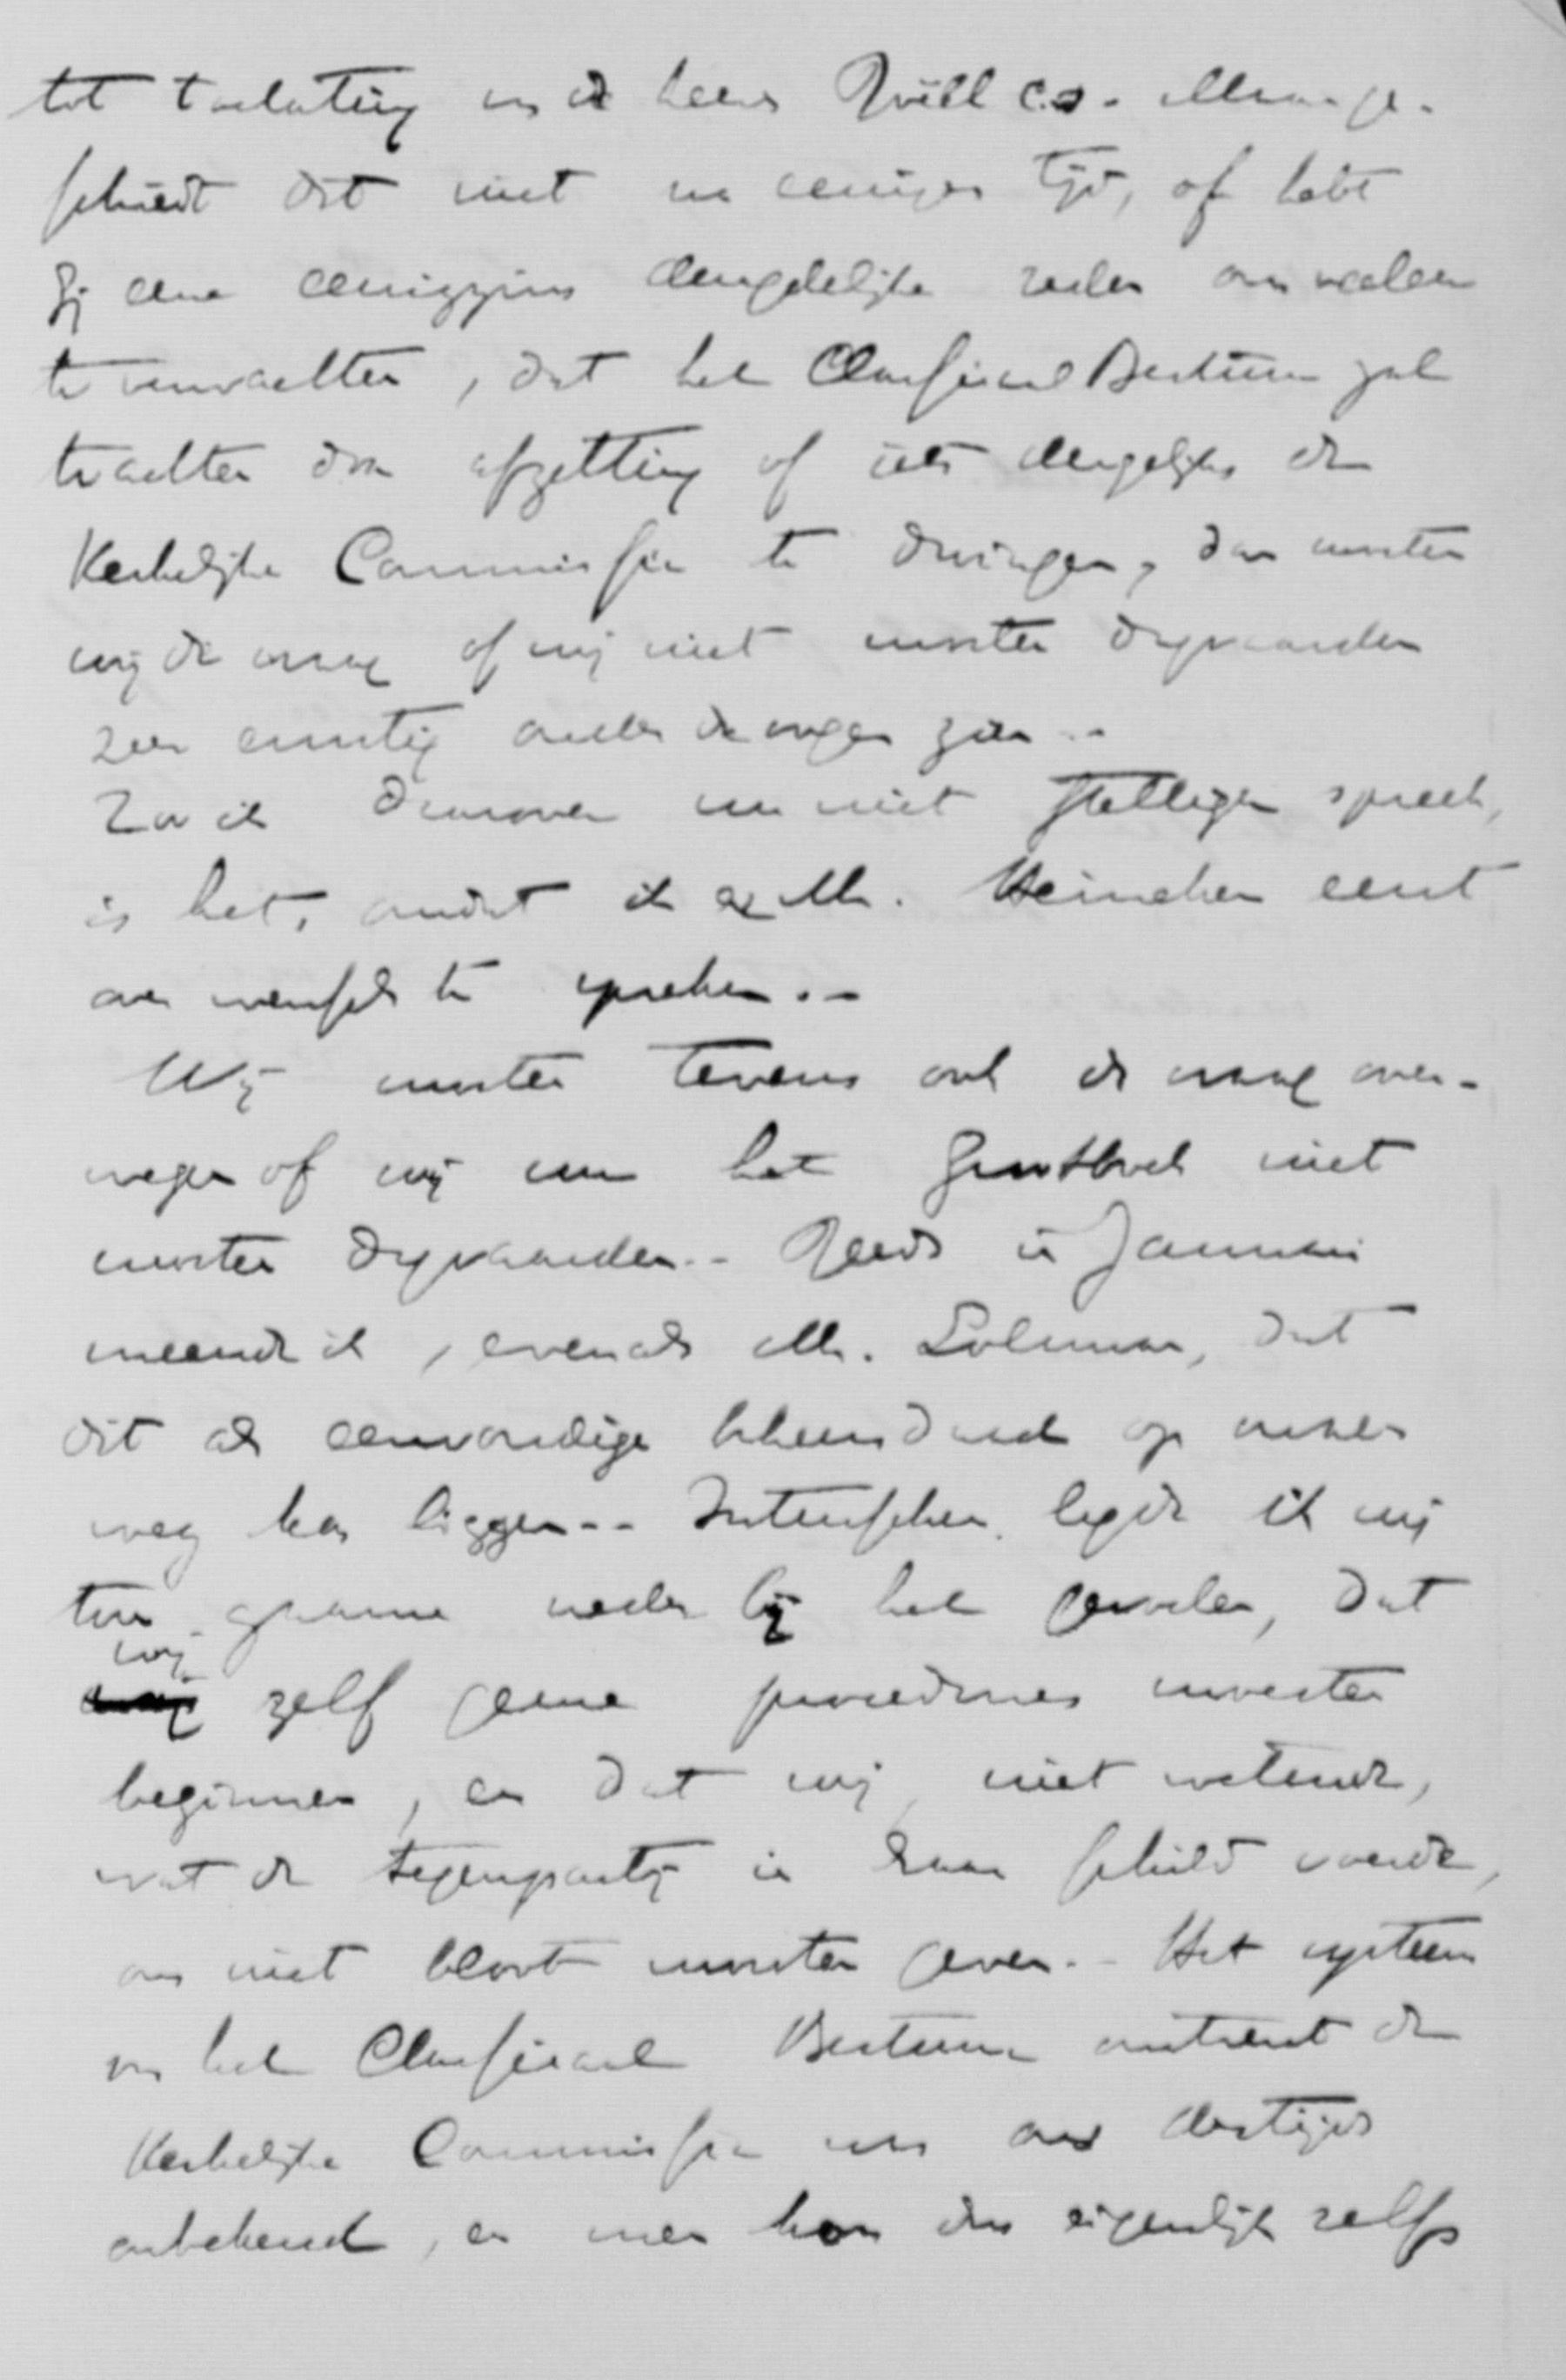 tot toelating van de heer Quill c.s. Maar ge-
schiedt dit niet na eenigen tijd, of hebt
Gij eene eenigzins deugdelijke reden om reeds
te verwachten, dat het Classicaal Bestuur zal
trachten door afzetting of iets dergelijks de
Kerkelijke Commissie te dwingen, dan moeten
wij de vraag of wij niet moeten dagvaarden
zeer ernstig onder de oogen zien. -
Zoo ik daarover nu niet stelliger spreek,
is het, omdat ik Mr. Heineken eerst
over wensch te spreken. -
Wij moeten tevens ook de vraag over-
wegen of wij nu het niet
moeten dagvaarden. - Reeds in Januari
meende ik, evenals Mr. Lohman, dat
dit als eenvoudige beheersdaad op onzen
weg kon liggen. - Intusschen legde ik mij
toen gaarne neder bij het gevoelen, dat
wij zelf geene procedures moesten
beginnen, en dat wij, niet wetende,
wat de tegenpartij in haar schild voerde,
ons niet bloot moesten geven. - Het systeem
van het Classicaal Bestuur omtrent de
Kerkelijke Commissie was ons destijds
onbekend, en men kon dus eigenlijk zelfs